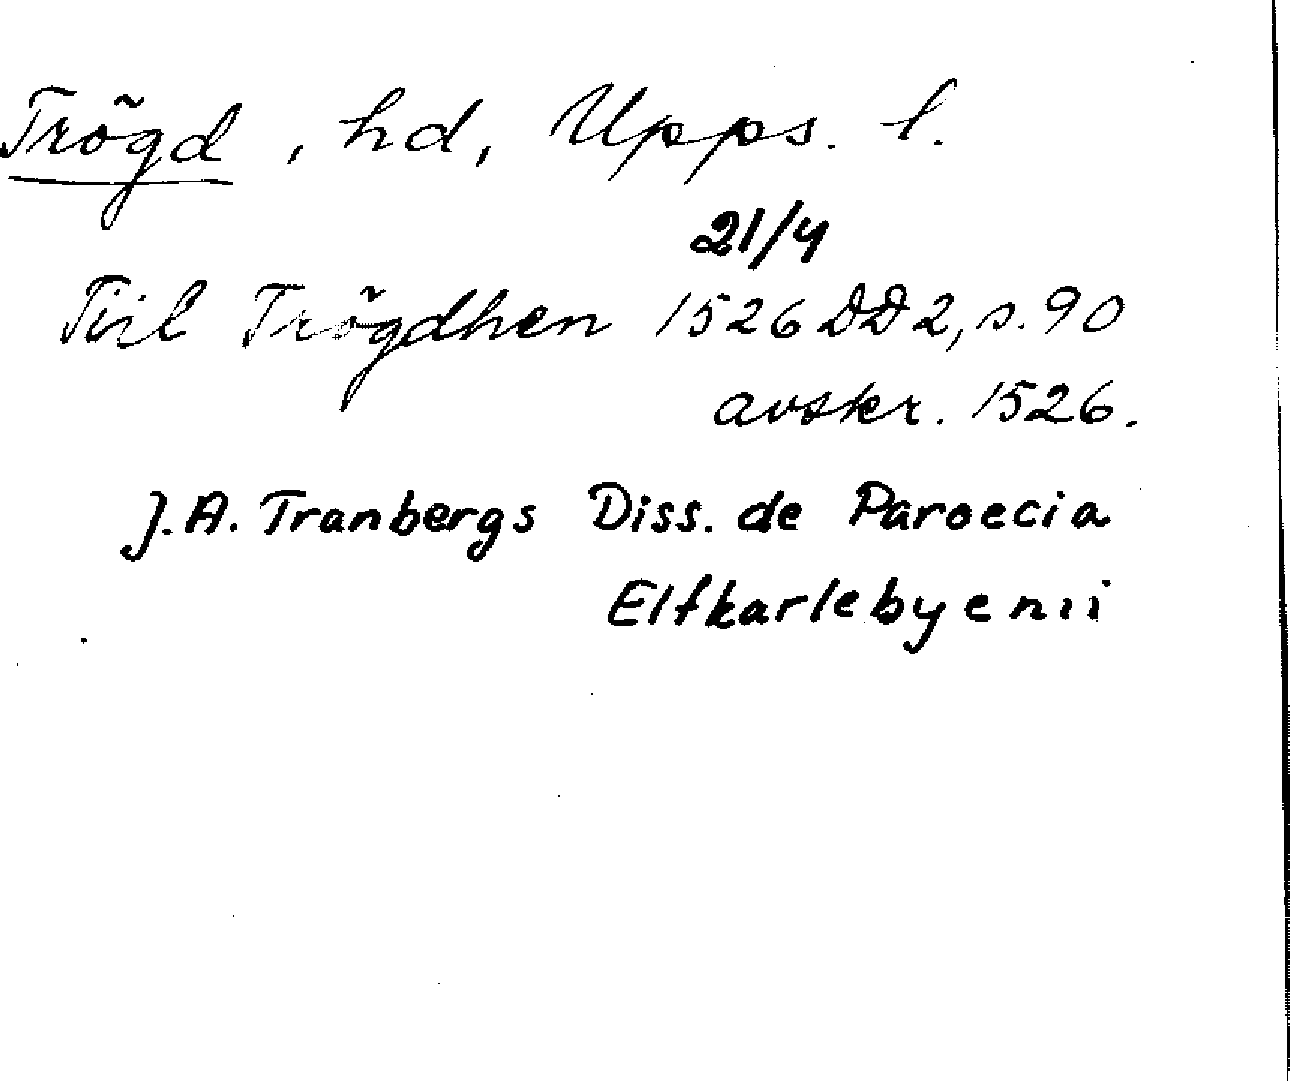 Trögd, hd, Upps. l.
21/4
Tiil Trögdhen 1526 DD2, s. 90
avskr. 1526.
J.A. Tranbergs Diss. de Paroecia
Elfkarlebyenii